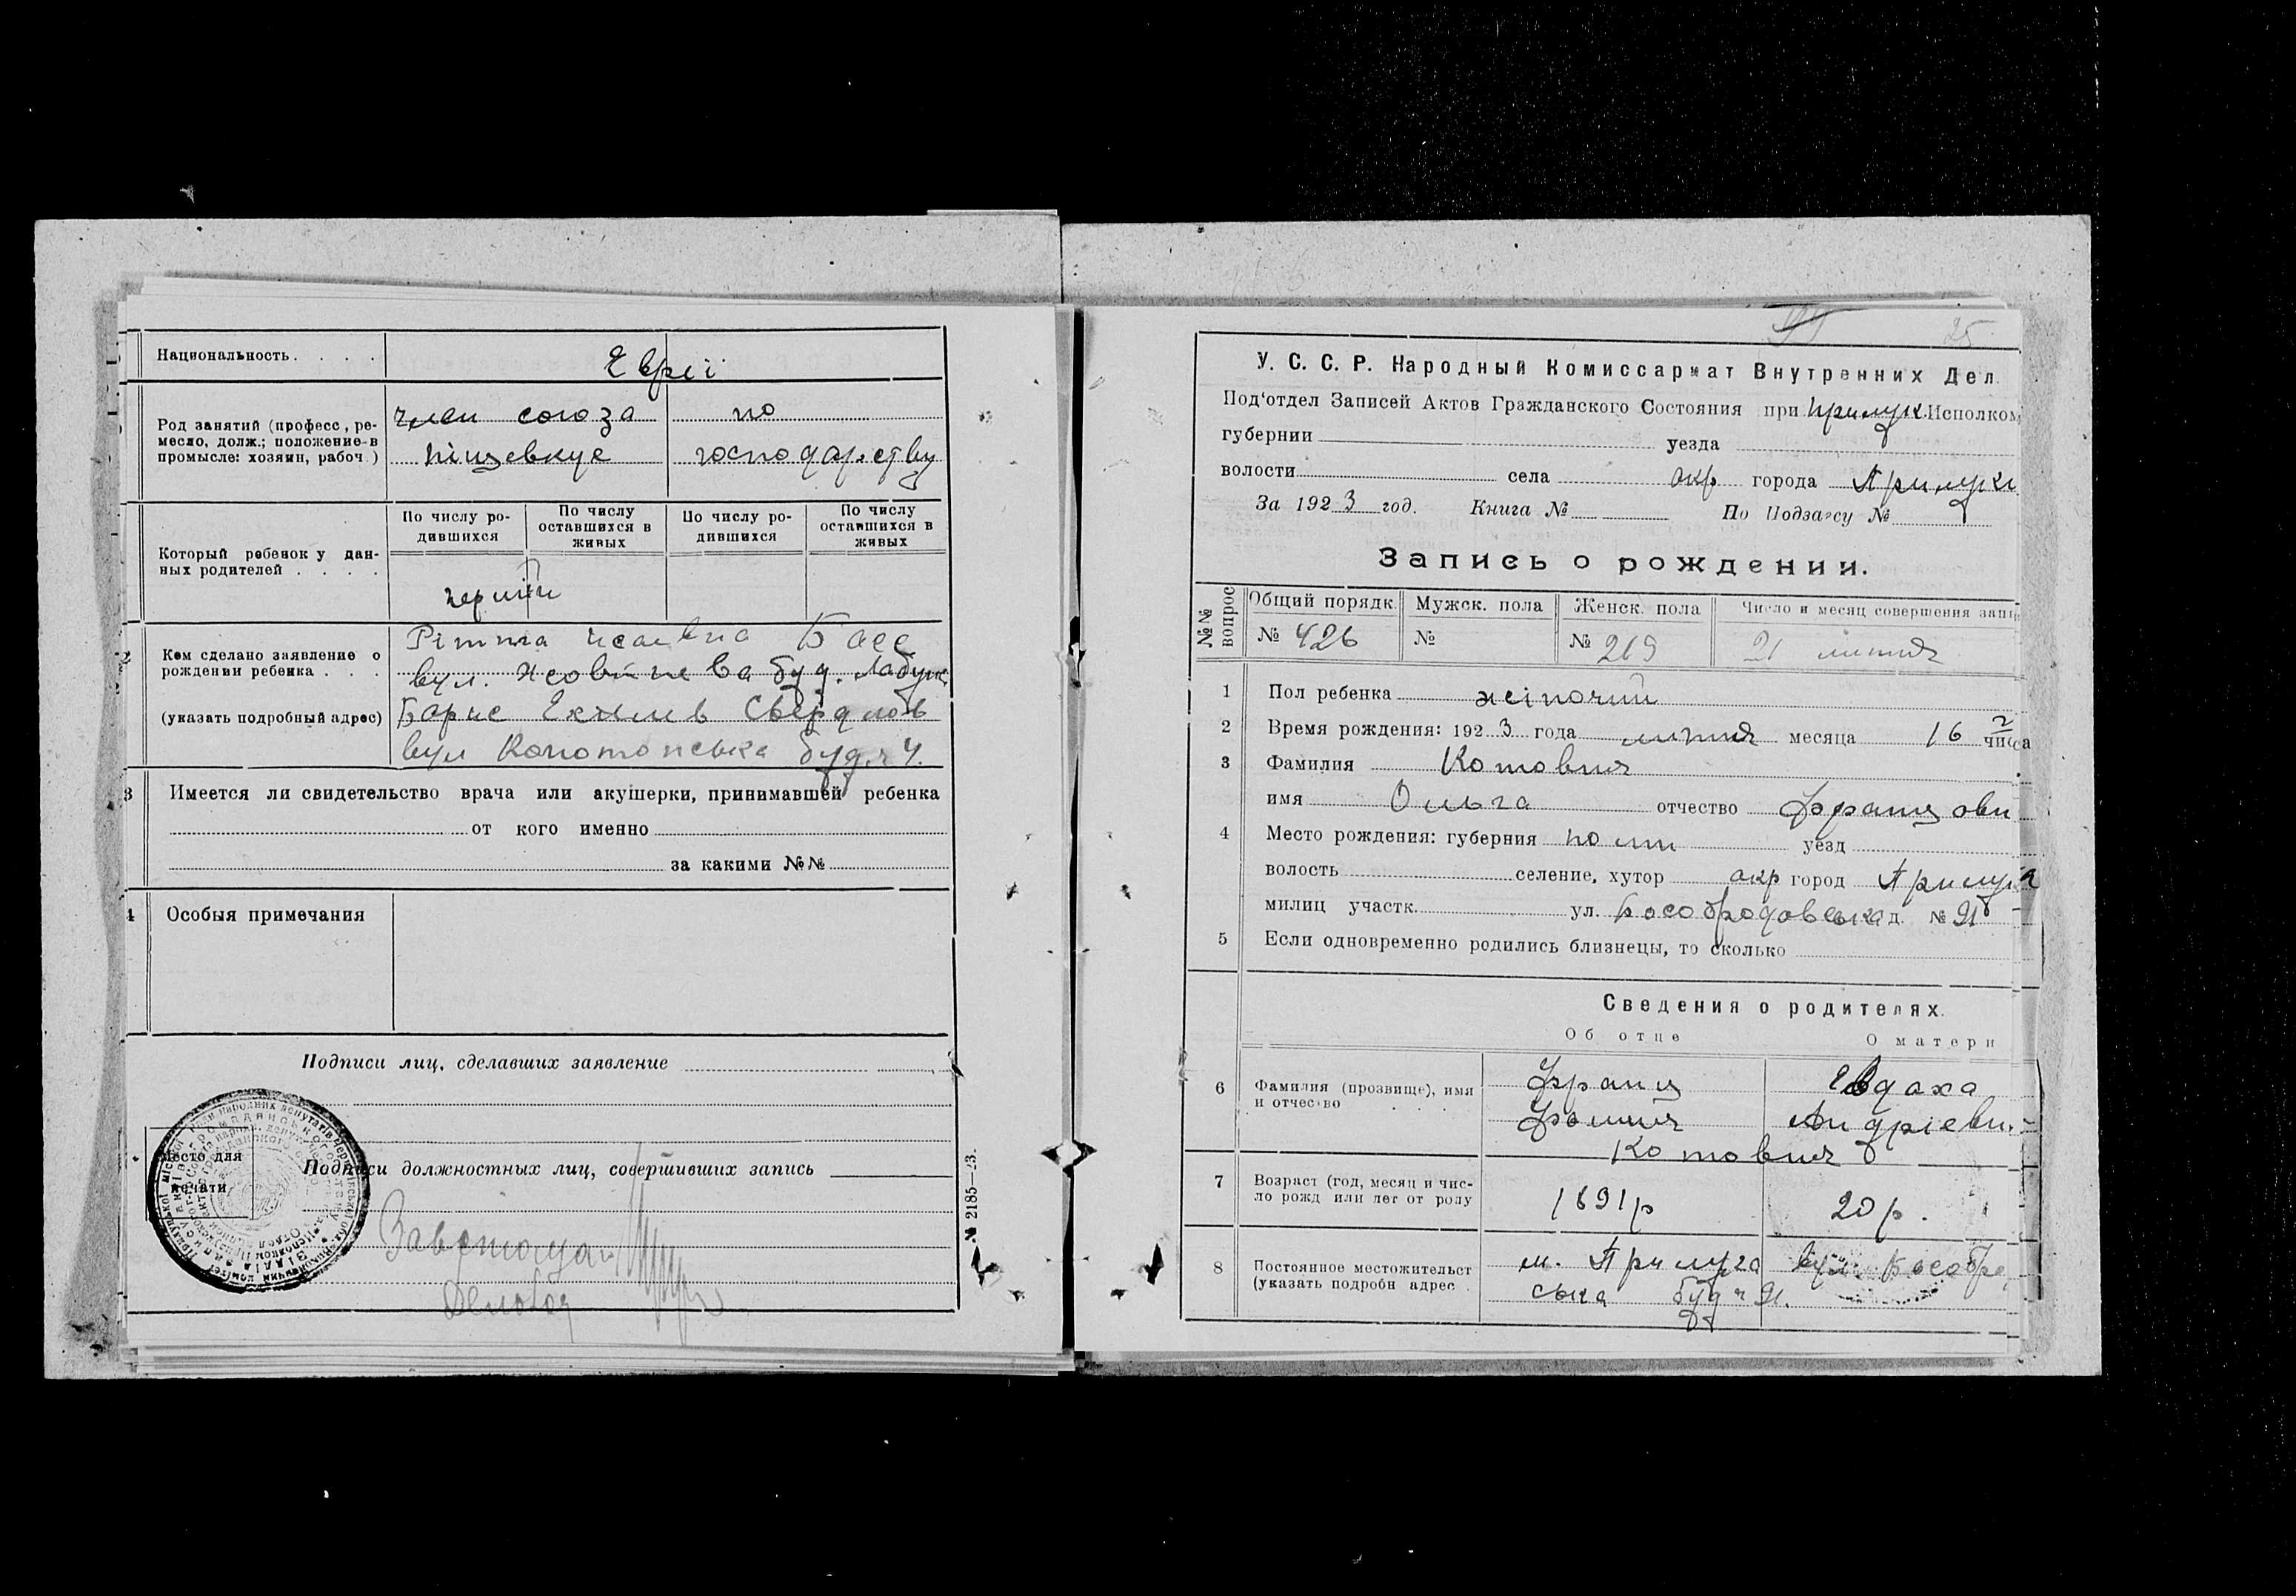 Национальность. . . . .
Евреї
Род занятий (професс, ре-
месло, долж.; положение в
промысле: хозяин, рабоч.)
член союза
піщевкус
по
господарству
Который ребенок у дан-
ных родителей . . . .
По числу ро-
дившихся
По числу
оставшихся в
живых
По числу ро-
дившихся
По числу
оставшихся в
живых
перший
Кем сделано заявление о
рождении ребенка . . .
(указать подробный адрес)
Рімма Ісаевна Басс
вул. буд.
Борис Свердлов
вул Конотопська буд. ч 4.
3 Имеется ли свидетельство врача или акушерки, принимавшей ребенка
от кого именно
за какими №№
4 Особыя примечания
Подписи лиц, сделавших заявление
Место для
печати
Подписи должностных лиц, совершивших запись
Завстолом
Діловод
№ 2185—23.
25
У. С. С. Р. Народный Комиссариат Внутренних Дел
Под'отдел Записей Актов Гражданского Состояния при Прилук. Исполком
губернии уезда
волости села окр города Прилуки
За 1923 год. Книга № По Подзагсу №
Запись о рождении.
№№ вопрос
Общий порядк. Мужск. пола Женск. пола Число и месяц совершения запи
№ 426 № № 219 21 липня
1 Пол ребенка жіночий
2 Время рождения: 1923 года липня месяца 16 числа
3 Фамилия Котович
имя Ольга отчество Францови
4 Место рождения: губерния Полт уезд
волость селение, хутор окр город Прилука
милиц участк. ул. Кособродовська д. № 91
5 Если одновременно родились близнецы, то сколько
Сведения о родителях.
Об отце О матери
6 Фамилия (прозвище), имя
и отчество
Франц
Евдоха
Андріевн.
Котович
7 Возраст (год, месяц и чис-
ло рожд или лет от роду
1891р 20 р.
8 Постоянное местожительст
(указать подробн адрес
м. Прилука вул. Кособро
ська буд ч 91.